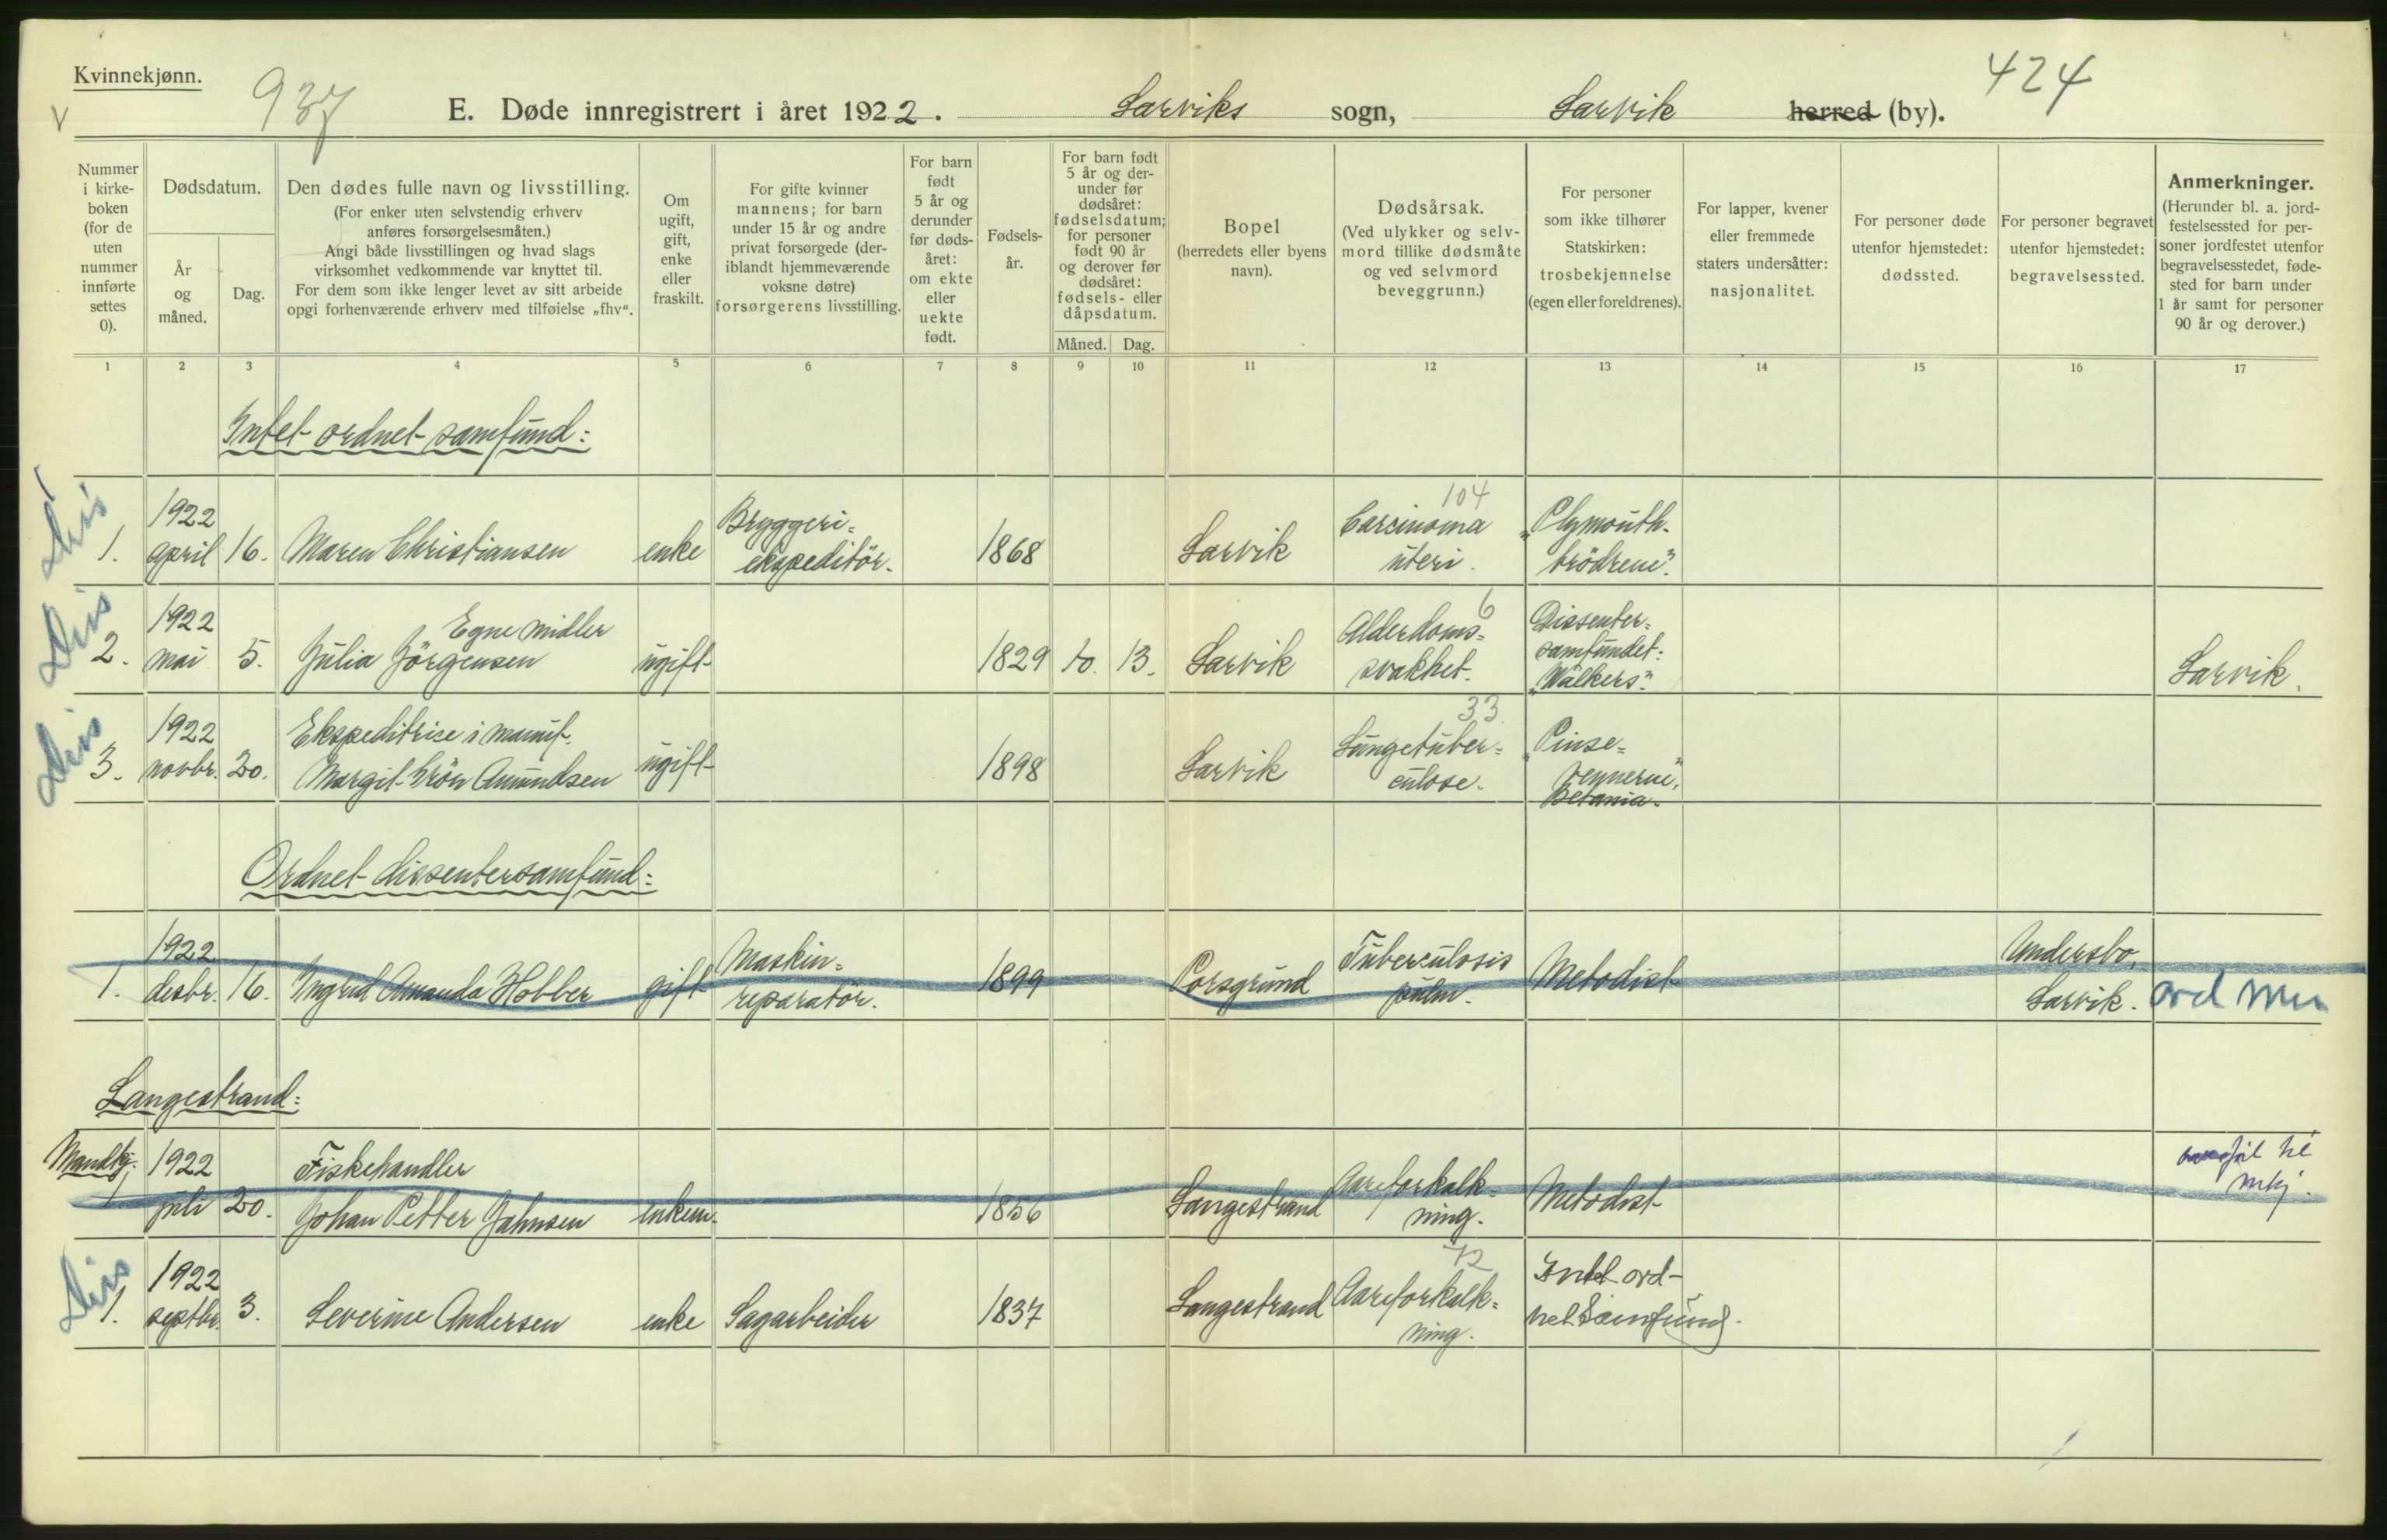 Kvinnekjønn.
937
424
V
E. Døde innregistrert i året 1922. Larviks sogn, Larvik herred (by).
Nummer
i kirke-
boken
(for de
uten
nummer
innførte
settes
0).
Dødsdatum.
År
og
måned.
Dag.
Den dødes fulle navn og livsstilling.
(For enker uten selvstendig erhverv
anføres forsørgelsesmåten.)
Angi både livsstillingen og hvad slags
virksomhet vedkommende var knyttet til.
For dem som ikke lenger levet av sitt arbeide
opgi forhenværende erhverv med tilføielse „fhv“.
Om
ugift,
gift,
enke
eller
fraskilt.
For gifte kvinner
mannens; for barn
under 15 år og andre
privat forsørgede (der-
iblandt hjemmeværende
voksne døtre)
forsørgerens livsstilling.
For barn
født
5 år og
derunder
før døds-
året:
om ekte
eller
uekte
født.
Fødsels-
år.
For barn født
5 år og der-
under før
dødsåret:
fødselsdatum;
for personer
født 90 år
og derover før
dødsåret:
fødsels- eller
dåpsdatum.
Måned. Dag.
Bopel
(herredets eller byens
navn).
Dødsårsak.
(Ved ulykker og selv-
mord tillike dødsmåte
og ved selvmord
beveggrunn.)
For personer
som ikke tilhører
Statskirken:
trosbekjennelse
(egen eller foreldrenes).
For lapper, kvener
eller fremmede
staters undersåtter:
nasjonalitet.
For personer døde
utenfor hjemstedet:
dødssted.
For personer begravet
utenfor hjemstedet:
begravelsessted.
Anmerkninger.
(Herunder bl. a. jord-
festelsessted for per-
soner jordfestet utenfor
begravelsesstedet, føde-
sted for barn under
1 år samt for personer
90 år og derover.)
1 2 3 4 5 6 7 8 9 10 11 12 13 14 15 16 17
Intet ordnet samfund:
Diss
1. 1922
april 16. Maren Christiansen enke Bryggeri=
ekspeditör. 1868 Larvik 104
Carcinoma
uteri. „Plymouth-
brödrene“.
Diss
2. 1922
mai 5. Egne midler
Julia Jörgensen ugift 1829 10. 13. Larvik 6
Alderdoms=
svakhet. Dissenter=
samfundet:
„Walkers“. Larvik.
Diss
3. 1922
novbr. 20. Ekspeditrise i manuf.
Margit Grön Amundsen ugift 1898 Larvik 33
Lungetuber=
culose. „Pinse=
vennerne“.
Betania.
Ordnet dissentersamfund:
1. 1922
desbr. 16. Ingrid Amanda Hobber gift Maskin=
reparatör. 1899 Porsgrund Tuberculosis
pulm. Metodist Undersbo,
Larvik. ord
Langestrand:
Mandkj. 1922
juli 20. Fiskehandler
Johan Petter Jahnsen enkem. 1856 Langestrand Aareforkalk=
ning. Metodist til
mkj.
Diss
1. 1922
septbr. 3. Severine Andersen enke Sagarbeider 1837 Langestrand 72
Aareforkalk=
ning. Intet ord-
net Samfund.